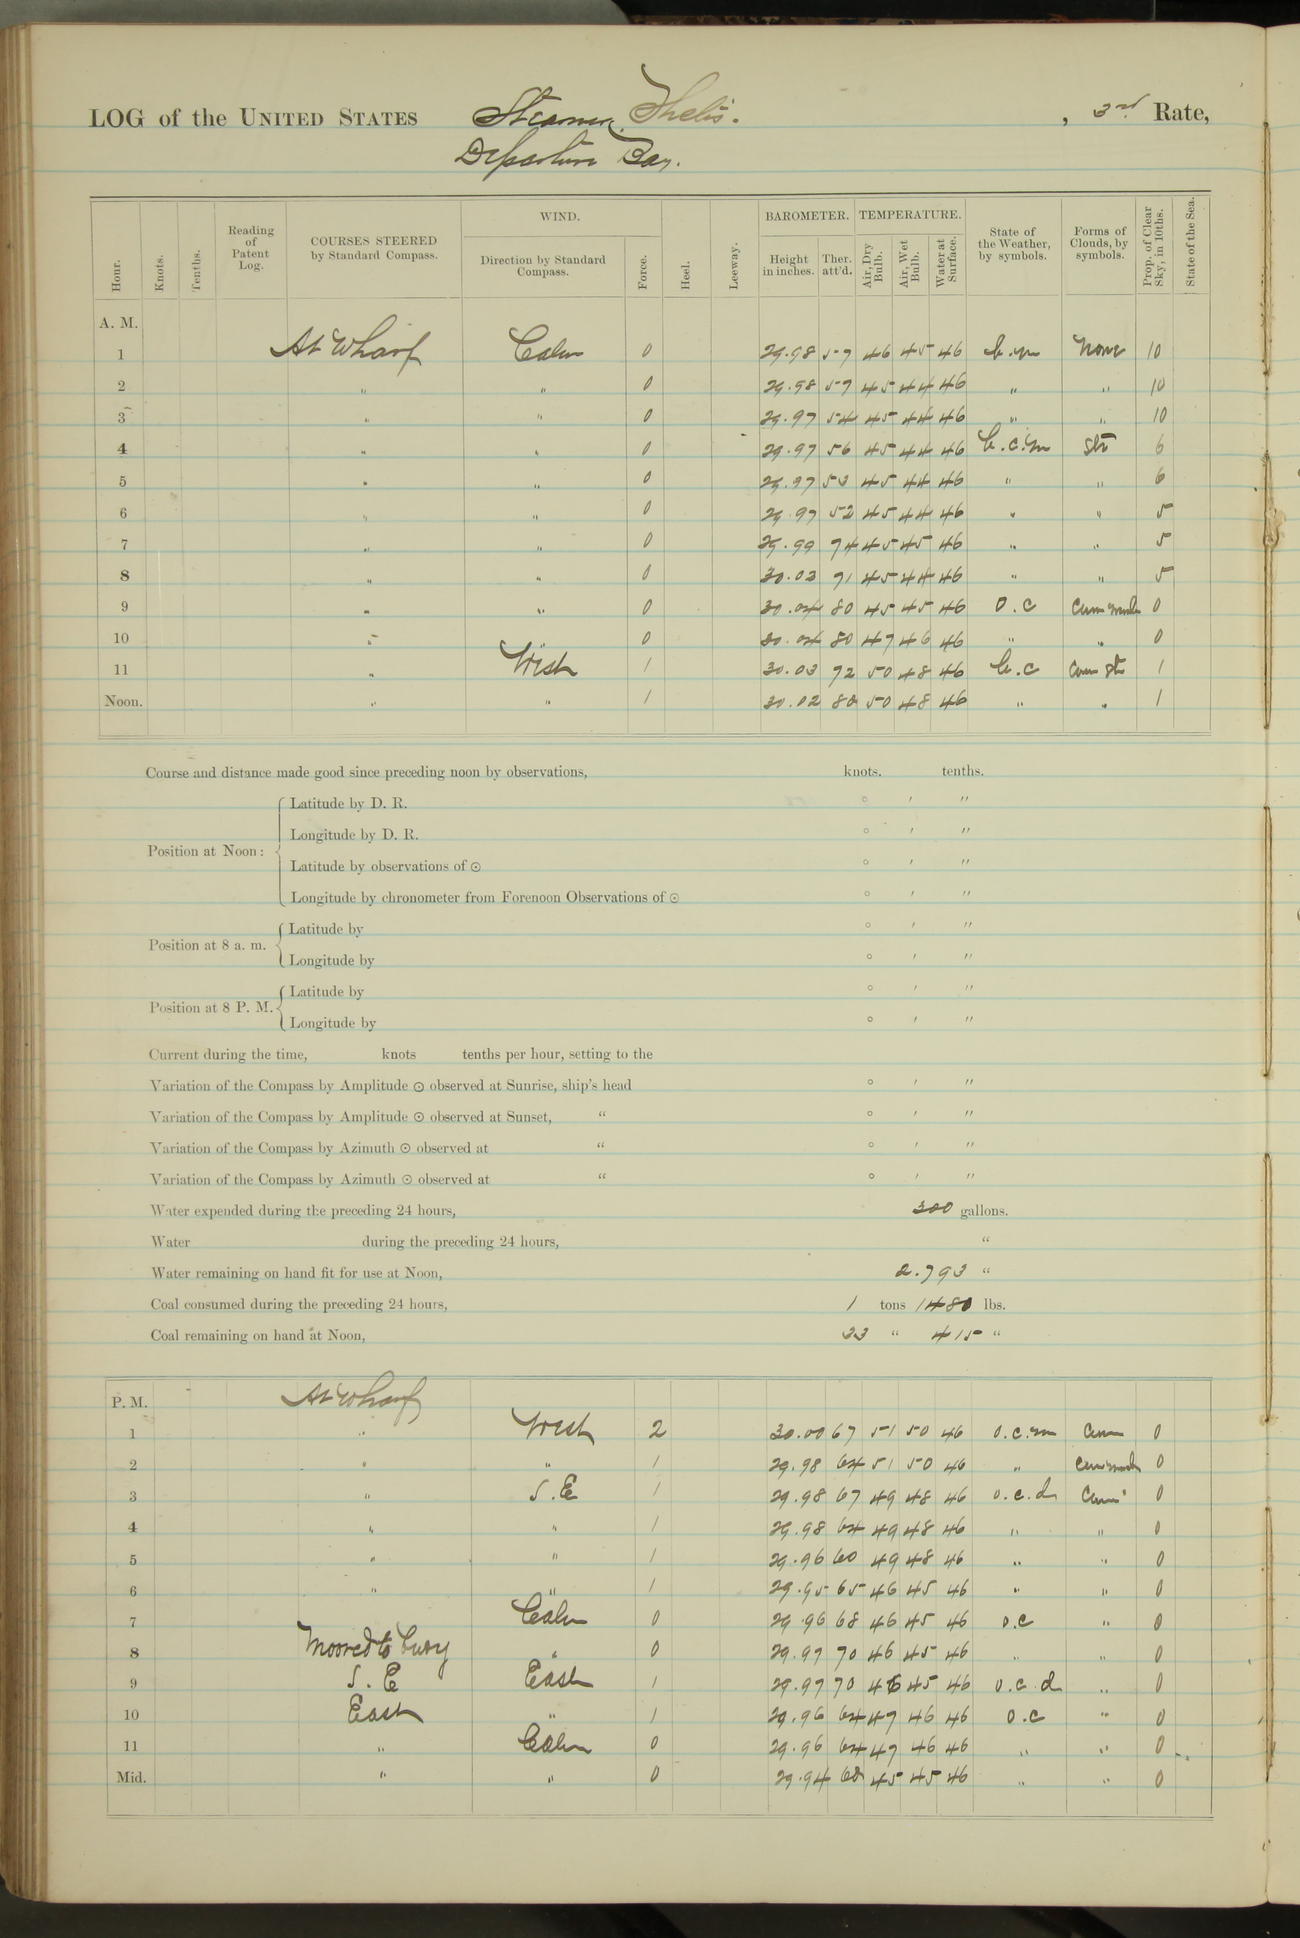 LOG of the UNITED STATES Steamer Thetis. , 3rd Rate,
Departure Bay.
Hour. Knots. Tenths. Reading of Patent Log. COURSES STEERED by Standard Compass. WIND. Direction by Standard Compass. Force. Heel. Leeway. BAROMETER. Height in inches. Ther. att'd. TEMPERATURE. Air, Dry Bulb. Air, Wet Bulb. Water at Surface. State of the Weather, by symbols. Forms of Clouds, by symbols. Prop. of Clear Sky, in 10ths. State of the Sea.
A. M.
1 At Wharf Calm 0 29.98 57 46 45 46 b.m None 10
2 " " 0 29.98 57 45 44 46 " " 10
3 " " 0 29.97 54 45 44 46 " " 10
4 " " 0 29.97 56 45 44 46 b.c.m Str 6
5 " " 0 29.97 53 45 44 46 " " 6
6 " " 0 29.97 52 45 44 46 " " 5
7 " " 0 29.99 74 45 45 46 " " 5
8 " " 0 30.03 71 45 44 46 " " 5
9 " " 0 30.04 80 45 45 46 o.c 0
10 " 0 30.04 80 47 46 46 " " 0
11 " West 1 30.03 72 50 48 46 b.c Cum St 1
Noon. " " 1 30.02 80 50 48 46 " " 1
Course and distance made good since preceding noon by observations, knots. tenths.
Position at Noon:
Latitude by D. R. ° ′ ″
Longitude by D. R. ° ′ ″
Latitude by observations of ☉ ° ′ ″
Longitude by chronometer from Forenoon Observations of ☉ ° ′ ″
Position at 8 a. m.
Latitude by ° ′ ″
Longitude by ° ′ ″
Position at 8 P. M.
Latitude by ° ′ ″
Longitude by ° ′ ″
Current during the time, knots tenths per hour, setting to the
Variation of the Compass by Amplitude ☉ observed at Sunrise, ship's head ° ′ ″
Variation of the Compass by Amplitude ☉ observed at Sunset, “ ° ′ ″
Variation of the Compass by Azimuth ☉ observed at “ ° ′ ″
Variation of the Compass by Azimuth ☉ observed at “ ° ′ ″
Water expended during the preceding 24 hours, 300 gallons.
Water during the preceding 24 hours, “
Water remaining on hand fit for use at Noon, 2.793 “
Coal consumed during the preceding 24 hours, 1 tons 1480 lbs.
Coal remaining on hand at Noon, 33 “ 415 “
P. M. At Wharf
1 " West 2 30.00 67 51 50 46 o.c.m Cum 0
2 " " 1 29.98 64 51 50 46 " 0
3 " S.E 1 29.98 67 49 48 46 o.c.d Cum 0
4 " " 1 29.98 64 49 48 46 " " 0
5 " " 1 29.96 60 49 48 46 " " 0
6 " " 1 29.95 65 46 45 46 " " 0
7 Calm 0 29.96 68 46 45 46 o.c " 0
8 Moored to buoy " 0 29.97 70 46 45 46 " " 0
9 S. E East 1 29.97 70 46 45 46 o.c.d " 0
10 East " 1 29.96 64 47 46 46 o.c " 0
11 " Calm 0 29.96 64 47 46 46 " " 0
Mid. " " 0 29.94 68 45 45 46 " " 0